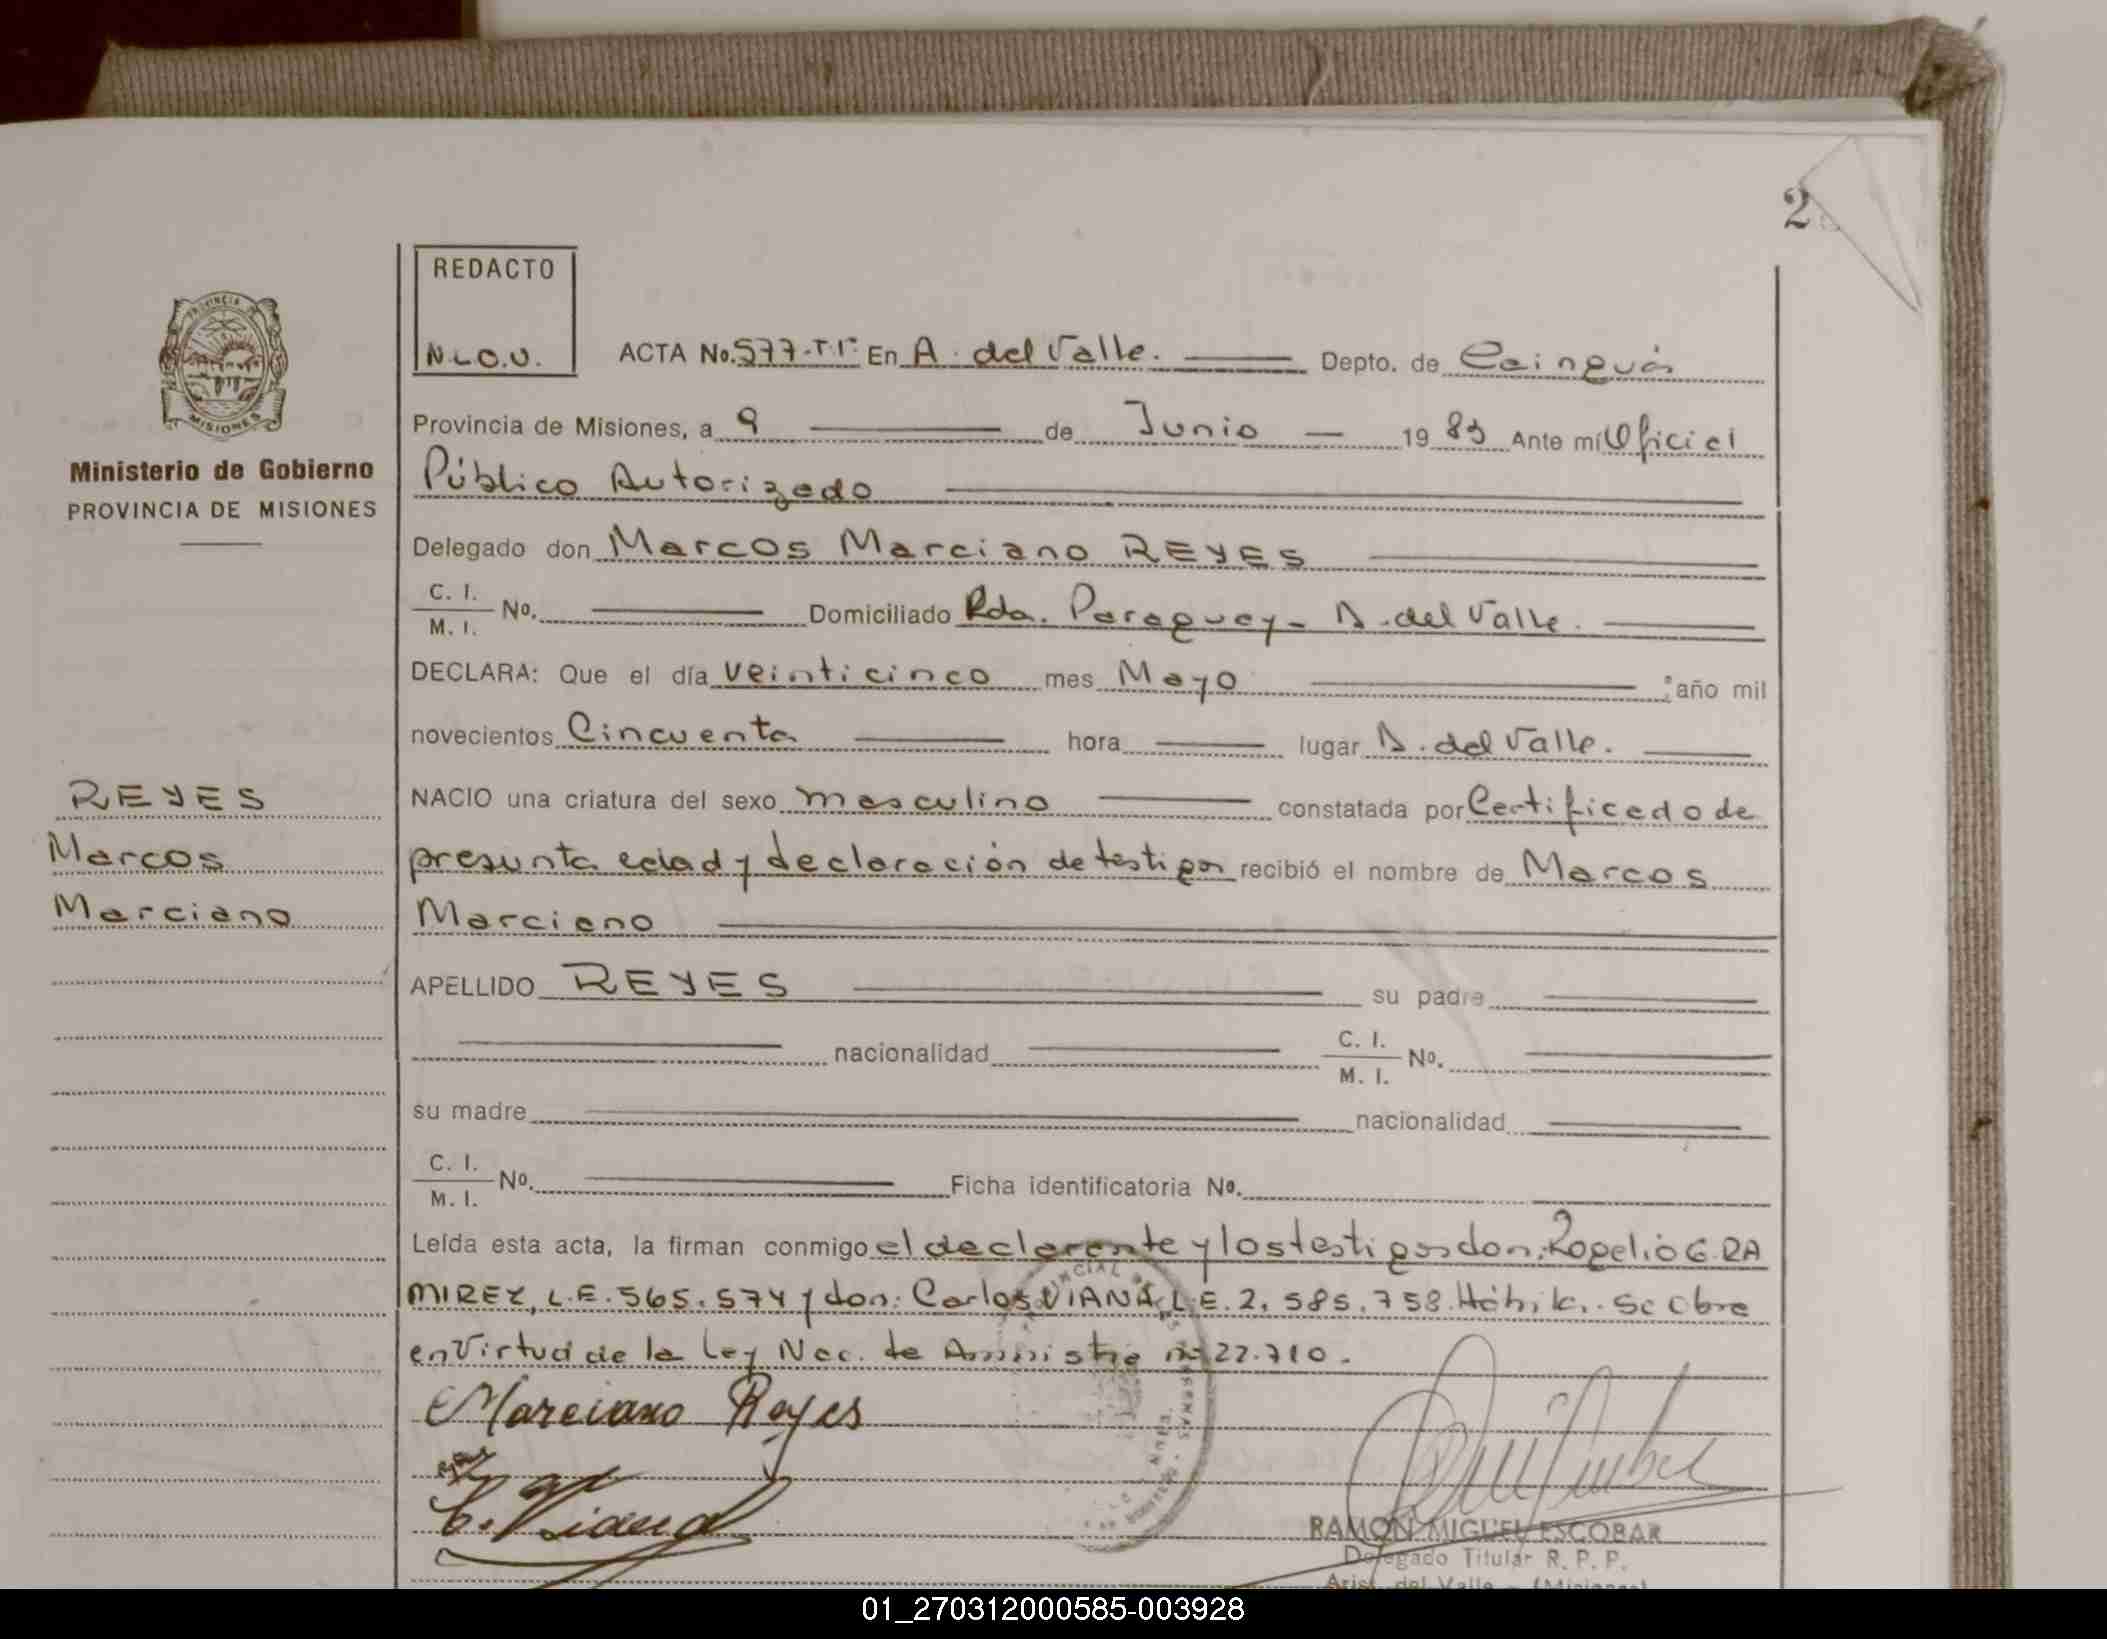 2
REDACTO
N.L.O.U.
ACTA No. 577-T.1º En A. del Valle. Depto. de Cainguás
Provincia de Misiones, a 9 de Junio 19 83 Ante mí Oficial
Público Autorizado
Delegado don Marcos Marciano REYES
C. I.
M. I. No. Domiciliado Rda. Paraguay - A. del Valle.
DECLARA: Que el día veinticinco mes Mayo ; año mil
novecientos Cincuenta hora lugar A. del Valle.
NACIO una criatura del sexo masculino constatada por Certificado de
presunta edad y declaración de testigos recibió el nombre de Marcos
Marciano
APELLIDO REYES su padre
nacionalidad C. I.
M. I. No.
su madre nacionalidad
C. I.
M. I. No. Ficha identificatoria No.
Leída esta acta, la firman conmigo el declarante y los testigos don: Rogelio G. RA
MIREZ, L.E. 565.574 y don: Carlos VIANA, L.E. 2.585.758. Hábik. Se Obre
en Virtud de la Ley Nac. de Amnistia nº 22.710.
Marciano Reyes
C. Viana
RAMON MIGUEL ESCOBAR
Delegado Titular R. P. P.
Arist. del Valle - (Misiones)
PROVINCIA DE
MISIONES
Ministerio de Gobierno
PROVINCIA DE MISIONES
REYES
Marcos
Marciano
01_270312000585-003928